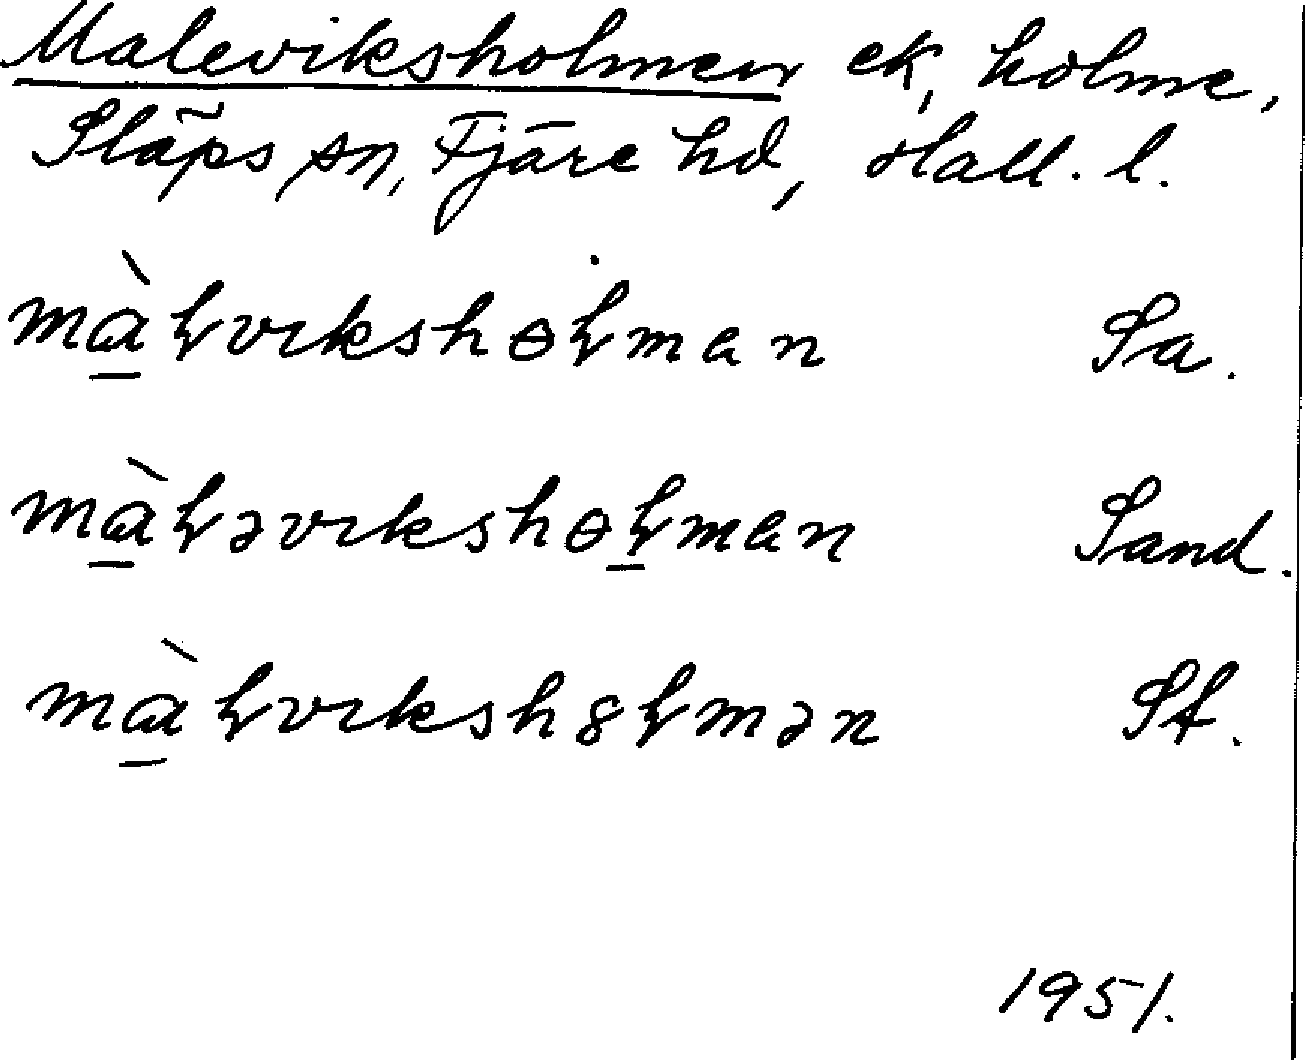 Maleviksholmen ek, holme,
Släps sn, Fjäre hd, Hall. l.
mɑ̠̀ɽvɪkshɵɽman Sa.
mɑ̠̀ɽəvɪkshɵɽ̠man Sand.
mɑ̠̀ɽvɪksh8ɽmən St.
1951.